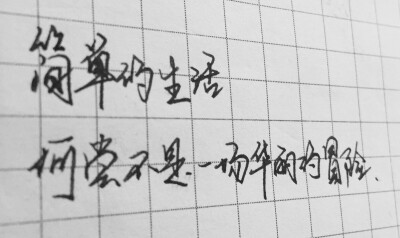 简单的生活
何尝不是一场华丽的冒险、